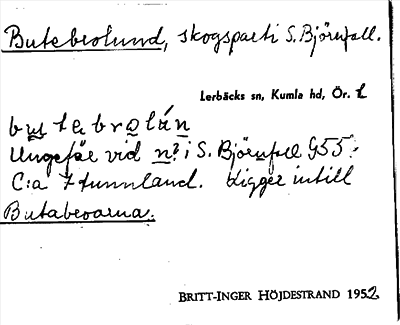 Butebrolund, skogsparti S. Björnfall.
Lerbäcks sn, Kumla hd, Ör. L
butebrolán
Ungefär vid n? i S. Björnfall G55.
C:a 7 tunnland. Ligger intill
Butabroarna.
BRITT-INGER HÖJDESTRAND 1952